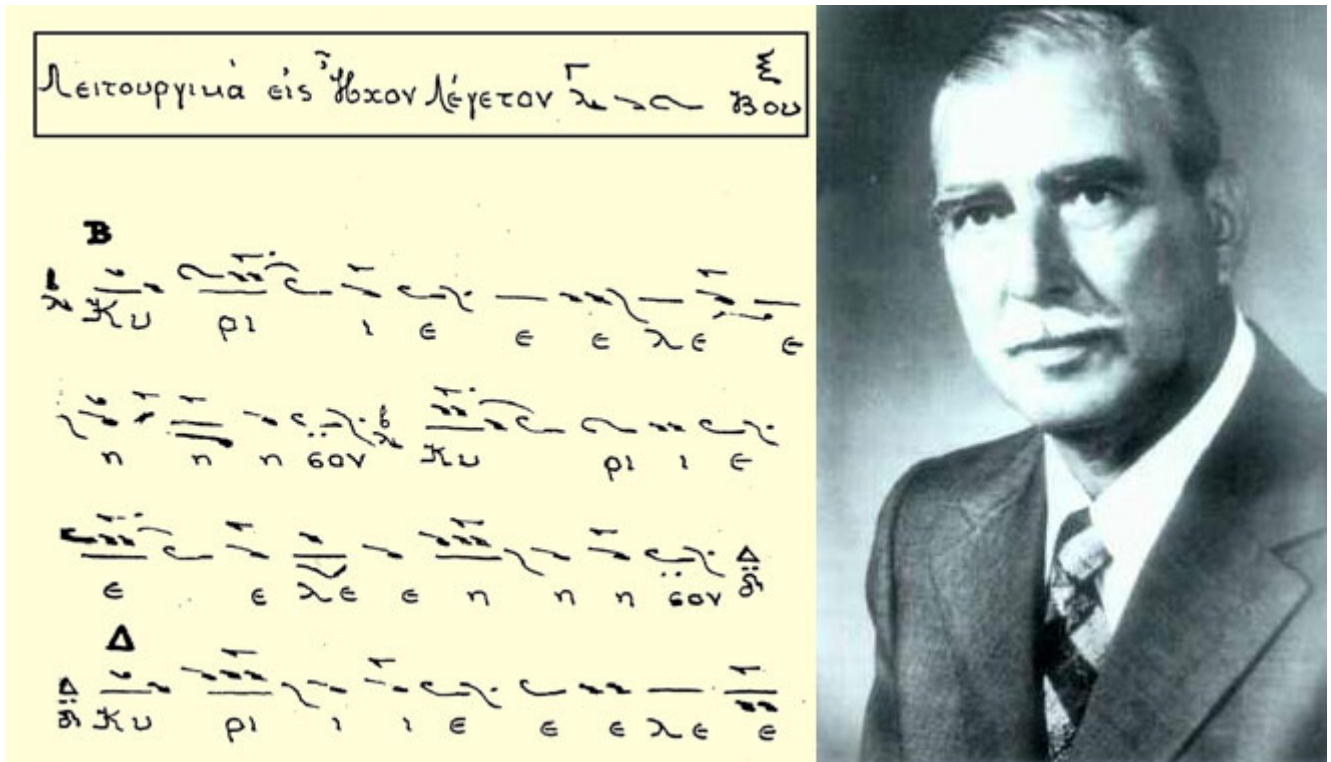 Λειτουργικά εἰς Ἦχον Λέγετον Βου
Β
Κυ ρι ι ε ε ε λε ε
η η η σον Κυ ρι ι ε
ε ε λε ε η η η σον Δ
Δ
Δ Κυ ρι ι ι ε ε ε λε ε